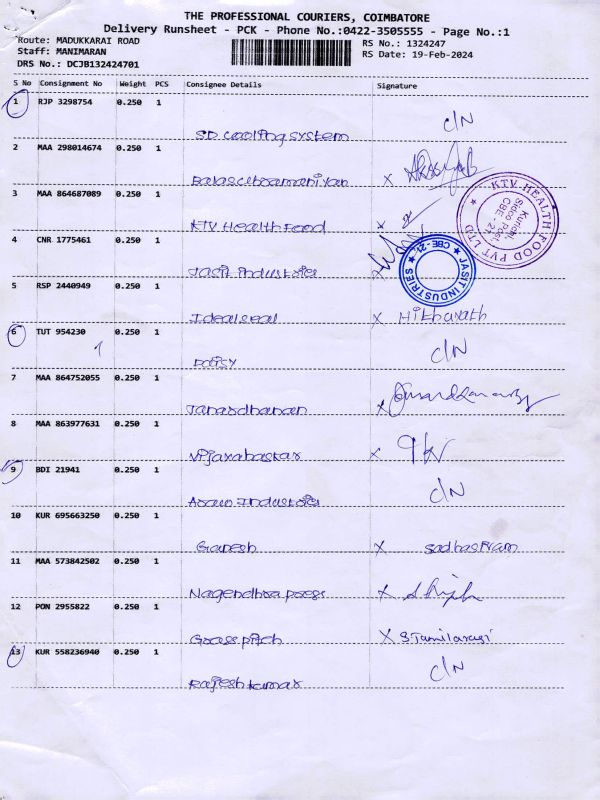 THE PROFESSIONAL COURIERS, COIMBATORE
Delivery Runsheet - PCK - Phone No.:0422-3505555 - Page No.:1
Route: MADUKKARAI ROAD
Staff: MANIMARAN
DRS No.: DCJB132424701
RS No.: 1324247
RS Date: 19-Feb-2024
S No Consignment No Weight PCS Consignee Details Signature
1 RJP 3298754 0.250 1
SD Cooling System C/N
2 MAA 298014674 0.250 1
Balasubramaniyan X
3 MAA 864687089 0.250 1
KTV Health Food X
KTV HEALTH FOOD PVT LTD
Kurichi,
Sidco Post,
CBE - 21.
4 CNR 1775461 0.250 1
Jasit industries X
JASIT INDUSTRIES
CBE - 21.
5 RSP 2440949 0.250 1
Ideal seal X Hitharath
6 TUT 954230 0.250 1
1
C/N
7 MAA 864752055 0.250 1
Janardhanan X
8 MAA 863977631 0.250 1
Vijayabaskar X
9 BDI 21941 0.250 1
Industries C/N
10 KUR 695663250 0.250 1
Ganesh X Sadhasivam
11 MAA 573842502 0.250 1
Nagendhra X
12 PON 2955822 0.250 1
Grass pitch X S Tamilarasi
13 KUR 558236940 0.250 1
Rajesh kumar C/N